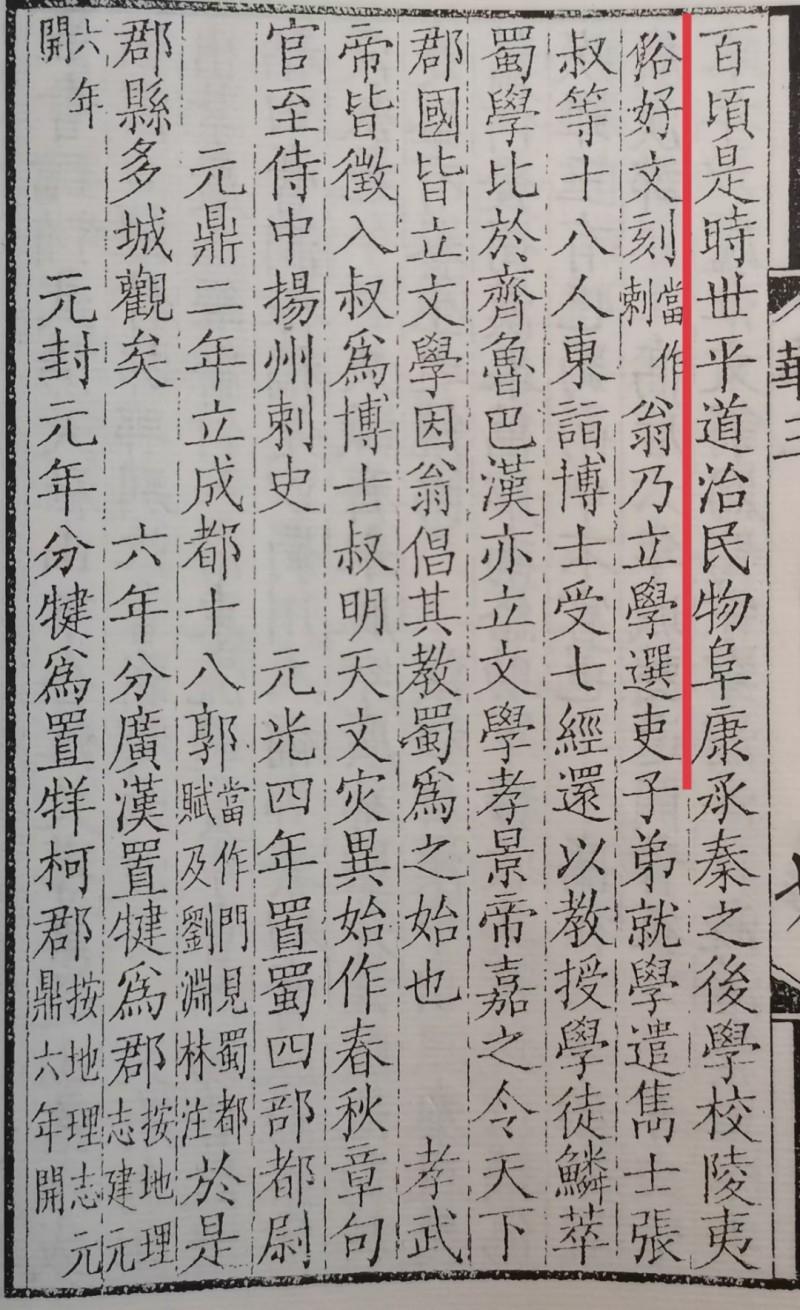 百頃是時世平道治民物阜康承秦之後學校陵夷
俗好文刻當作剌翁乃立學選吏子弟就學遣雋士張
叔等十八人東詣博士受七經還以教授學徒鱗萃
蜀學比於齊魯巴漢亦立文學孝景帝嘉之令天下
郡國皆立文學因翁倡其教蜀爲之始也 孝武
帝皆徵入叔爲博士叔明天文灾異始作春秋章句
官至侍中揚州刺史 元光四年置蜀四部都尉
元鼎二年立成都十八郭當作門見蜀都賦及劉淵林注於是
郡縣多城觀矣 六年分廣漢置犍爲郡按地理志建元
六年開 元封元年分犍爲置牂柯郡按地理志元鼎六年開